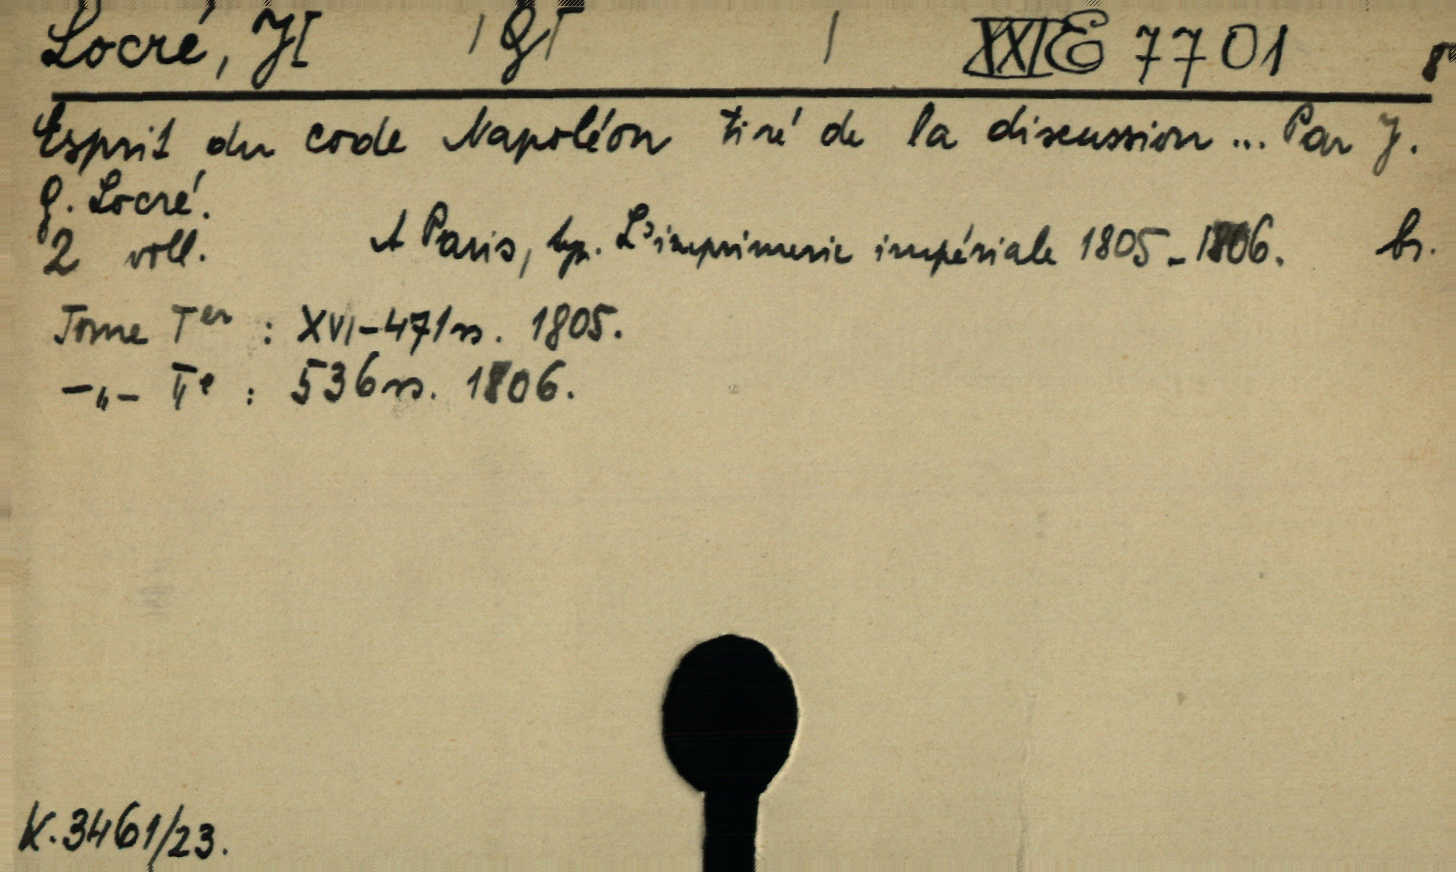 Locré, J[ / G[ / XXI E 7701
Esprit du code Napoléon tiré de la discussion ... Par J.
G. Locré.
2 voll. A Paris, typ. L'imprimerie impériale 1805-1806. br.
Tome Ier : XVI-471 ss. 1805.
-„- IIe : 536 ss. 1806.
K.3461/23.